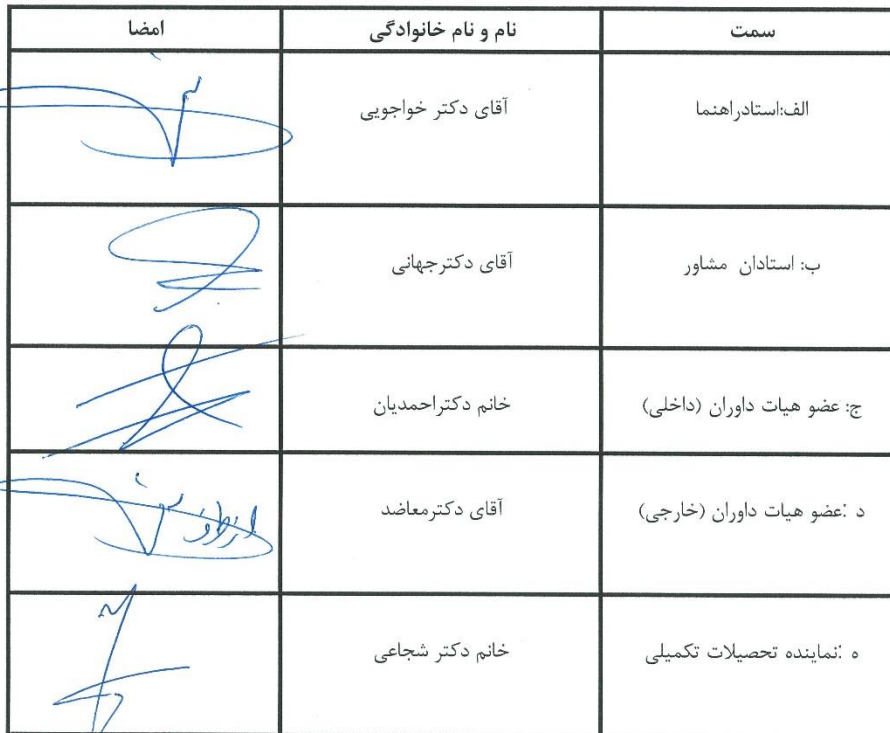 سمت نام و نام خانوادگی امضا
الف:استادراهنما آقای دکتر خواجویی
ب: استادان مشاور آقای دکترجهانی
ج: عضو هیات داوران (داخلی) خانم دکتراحمدیان
د :عضو هیات داوران (خارجی) آقای دکترمعاضد
ه :نماینده تحصیلات تکمیلی خانم دکتر شجاعی